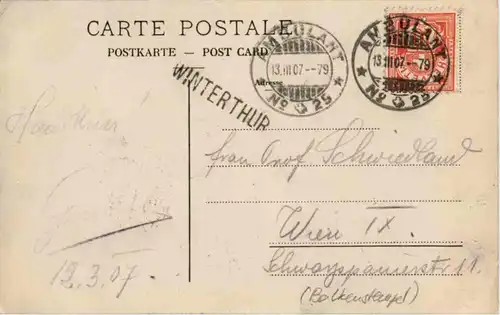 CARTE POSTALE
POSTKARTE — POST CARD
AMBULANT
13.III 07.--79
Nº 25
AMBULANT
13.III 07.--79
Nº 25
Adresse
WINTERTHUR
Frau Prof Schwiedland
Wien IX.
Schwarzspanierstr 11.
12.3.07.